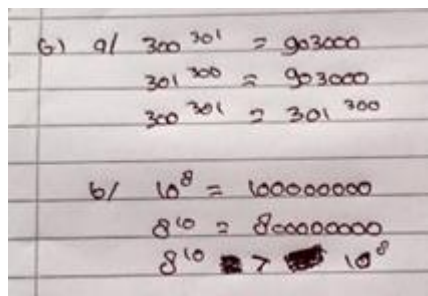 6) a/ 300^301 = 903000
301^300 = 903000
300^301 = 301^300
b/ 10^8 = 100000000
8^10 = 800000000
8^10 > 10^8